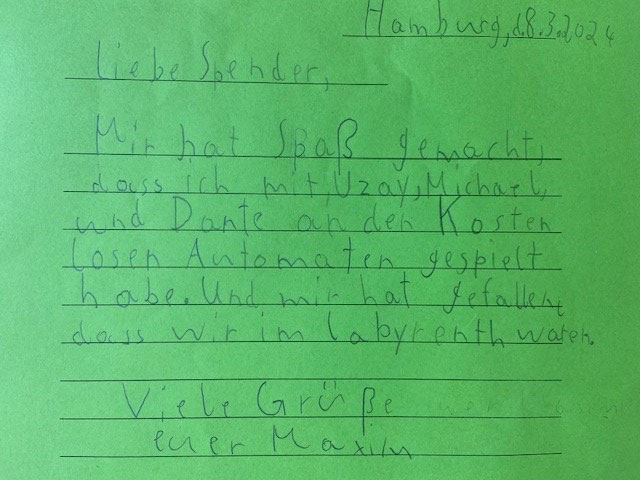 Hamburg, d. 8.3.2024
Liebe Spender,
Mir hat Spaß gemacht,
dass ich mit Uzay, Michael,
und Dante an den Kosten
losen Automaten gespielt
habe. Und mir hat gefallen,
dass wir im labyrenth waren.
Viele Grüße
euer Maxim